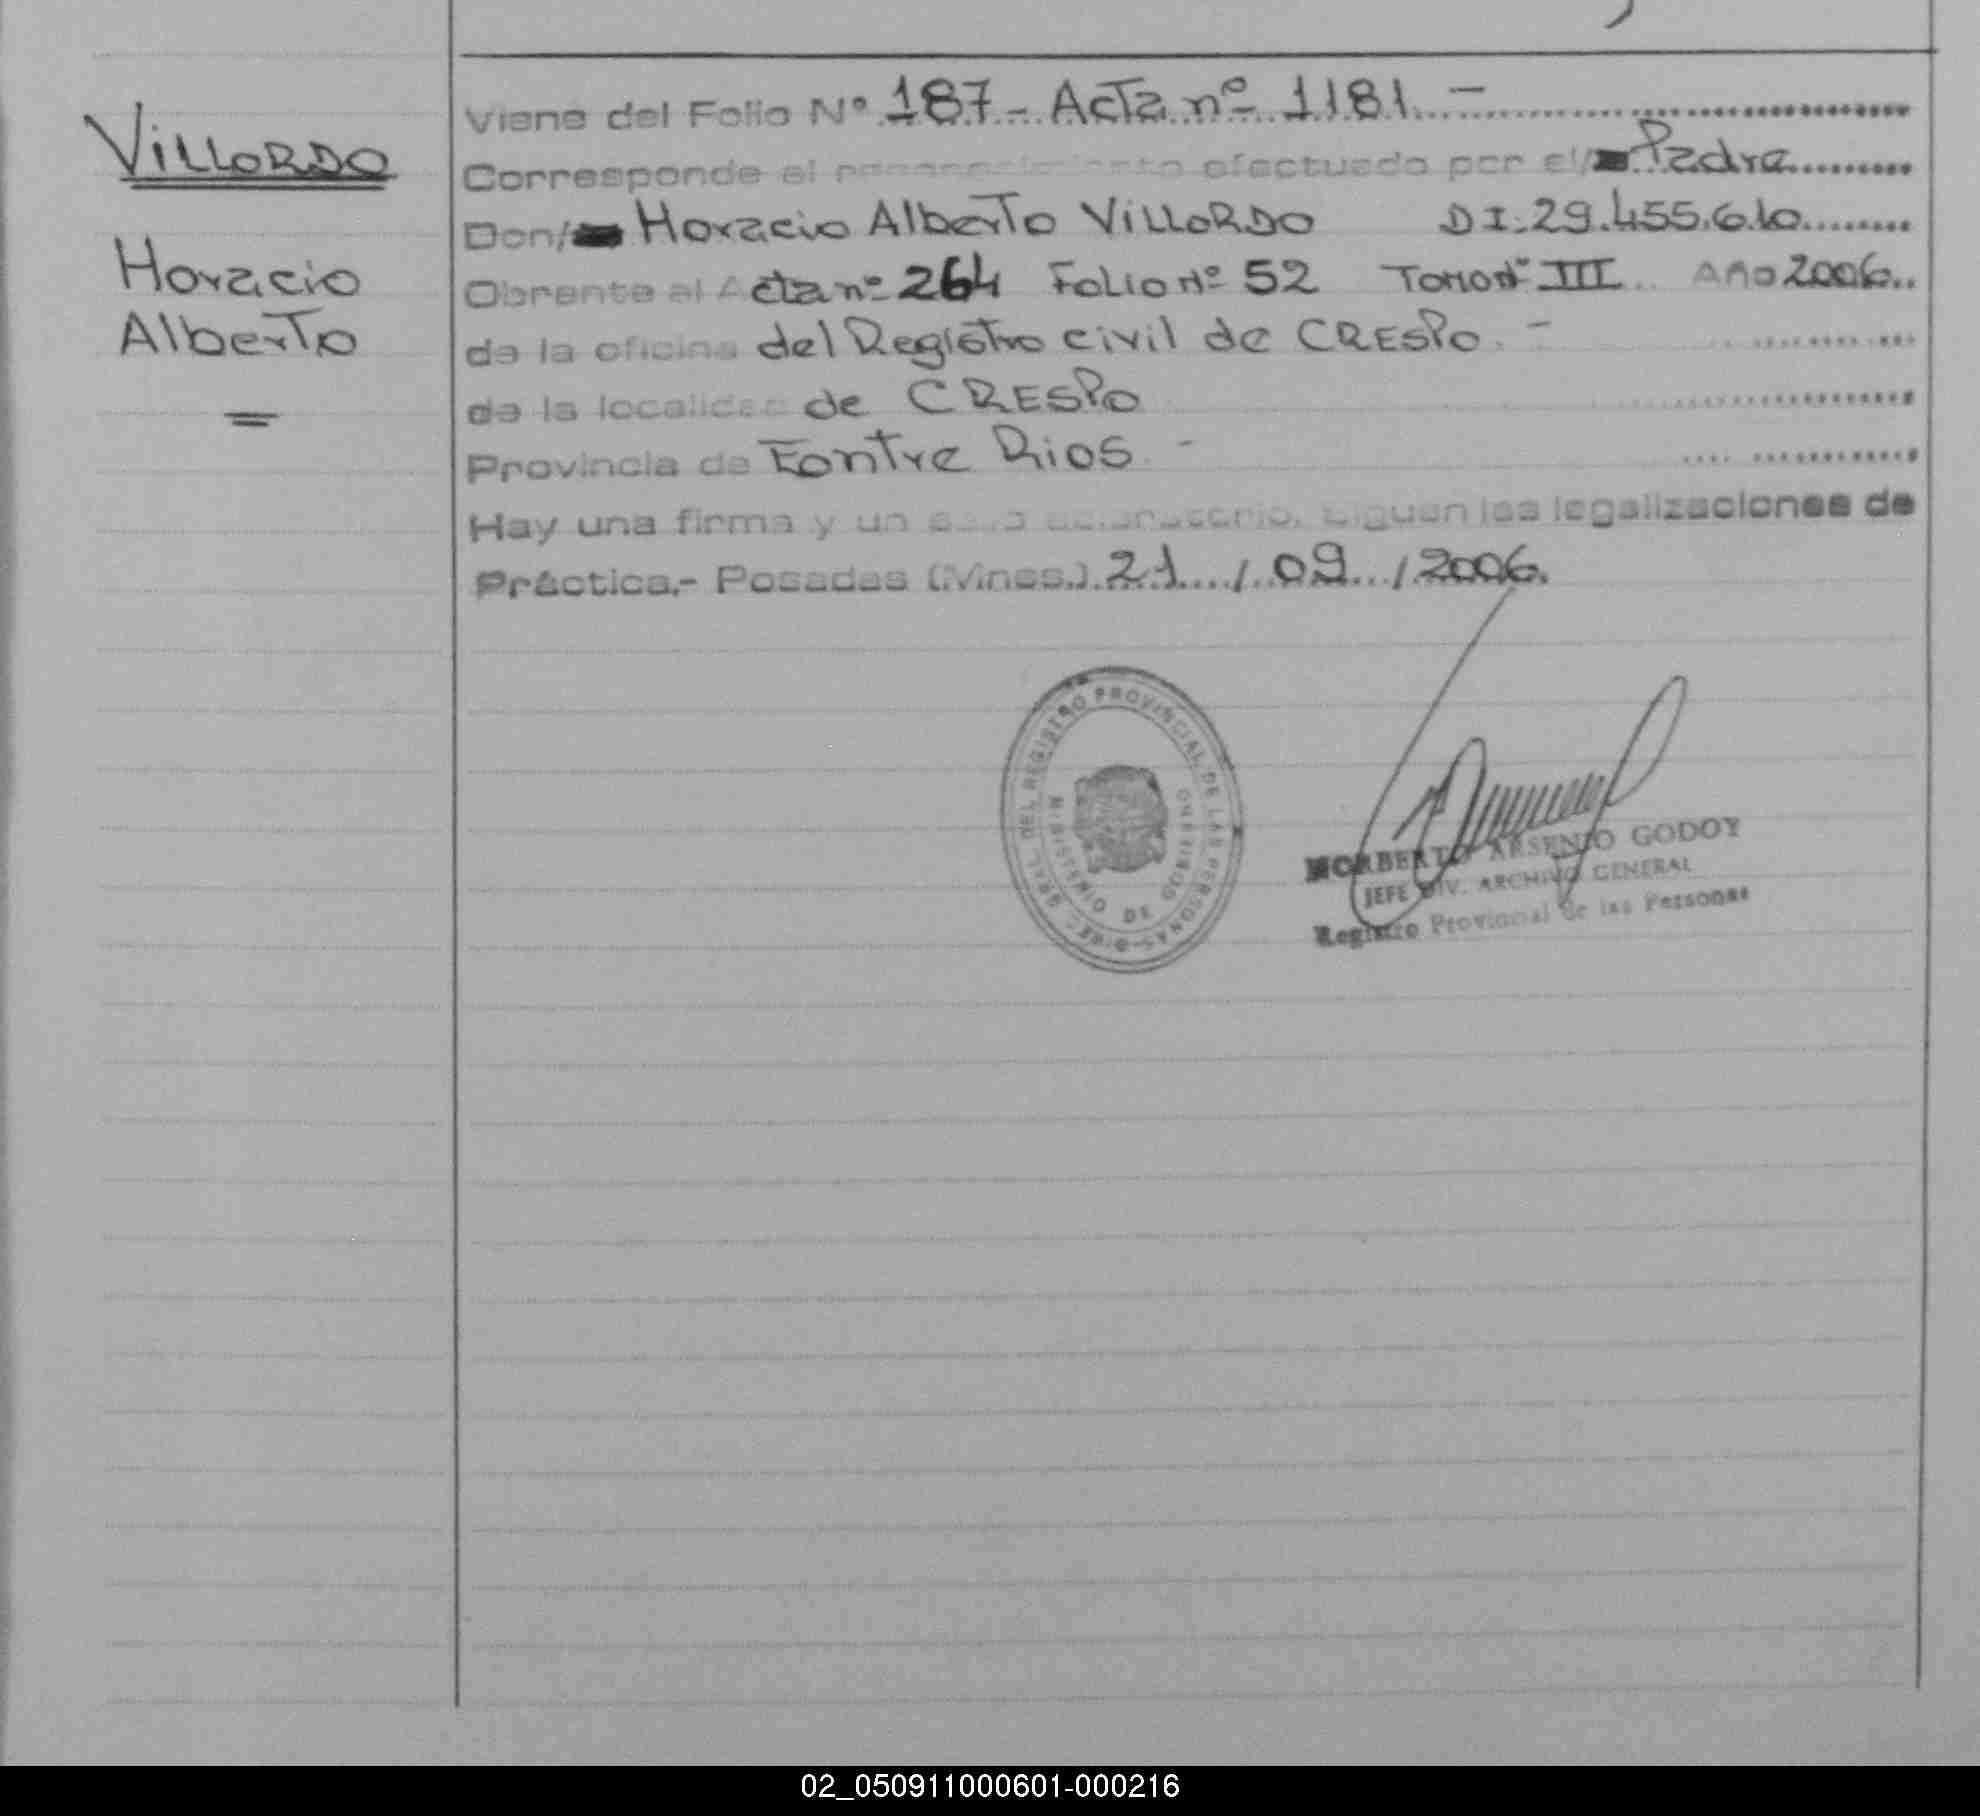 VILLORDO
Horacio
Alberto
Viene del Folio Nº 187 - Acta nº 1181. -
Corresponde al reconocimiento efectuado por el/ Padre
Don/ Horacio Alberto VILLORDO DI: 29.455.610
Obrante al Acta nº 264 Folio nº 52 Tomo nº III Año 2006
de la oficina del Registro civil de CRESPO. -
de la localidad de CRESPO
Provincia de Eontre Rios. -
Hay una firma y un sello aclaratorio. Siguen las legalizaciones de
Práctica.- Posadas (Mnes.) 21 / 09 / 2006.
GRAL. DEL REGISTRO PROVINCIAL DE LAS PERSONAS
MINISTERIO DE GOBIERNO
NORBERTO ARSENIO GODOY
JEFE DIV. ARCHIVO GENERAL
Registro Provincial de las Personas
02_050911000601-000216